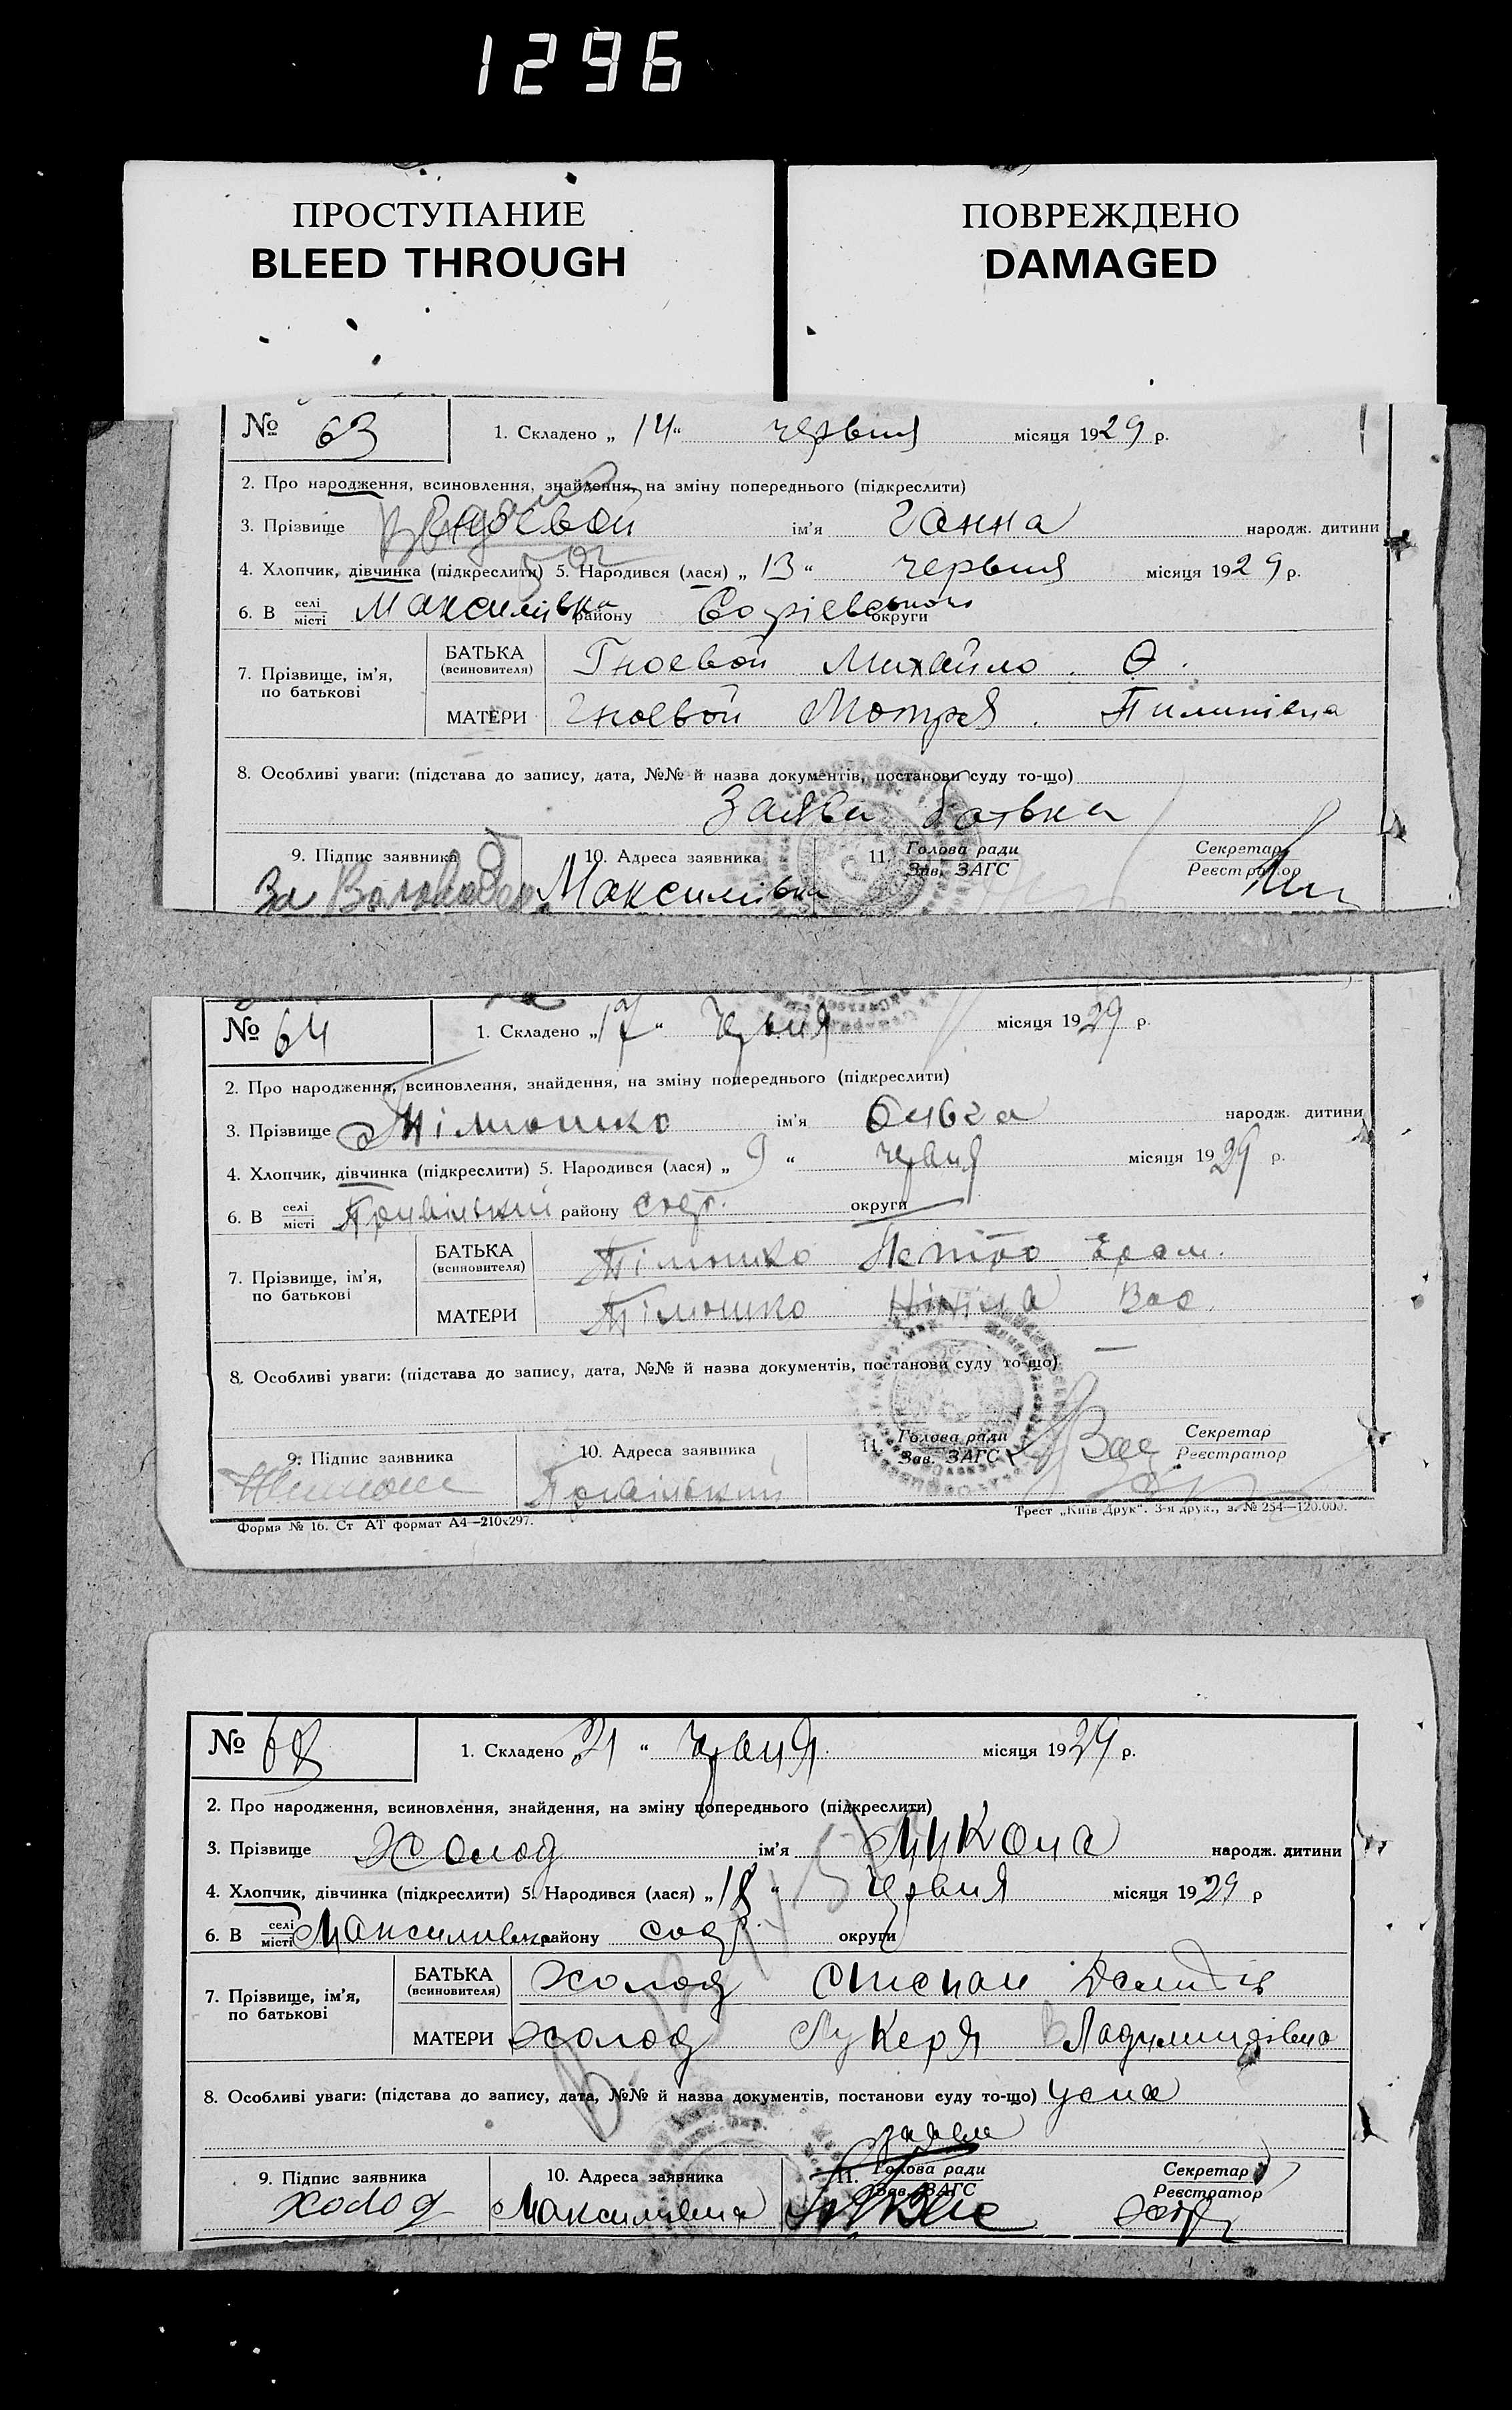 1296
ПРОСТУПАНИЕ
BLEED THROUGH
ПОВРЕЖДЕНО
DAMAGED
№ 63 1. Складено „ 14 “ червня місяця 1929 р.
2. Про народження, всиновлення, знайдення, на зміну попереднього (підкреслити)
3. Прізвище Гноевой ім'я Ганна народж. дитини
4. Хлопчик, дівчинка (підкреслити) 5. Народився (лася) „ 13 “ червня місяця 1929 р.
6. В селі місті Максимівка району округи
7. Прізвище, ім'я, по батькові
БАТЬКА (всиновителя) Гноевой Михайло . Ѳ .
МАТЕРИ Гноевой Мотря . Пилипівна
8. Особливі уваги: (підстава до запису, дата, №№ й назва документів, постанови суду то-що)
Заява батька
9. Підпис заявника 10. Адреса заявника 11. Голова ради Зав. ЗАГС Секретар Реєстратор
За Максимівка
№ 64 1. Складено „ 17 “ червня місяця 1929 р.
2. Про народження, всиновлення, знайдення, на зміну попереднього (підкреслити)
3. Прізвище Тімошко ім'я Ольга народж. дитини
4. Хлопчик, дівчинка (підкреслити) 5. Народився (лася) „ 9 “ червня місяця 1929 р.
6. В селі місті району округи
7. Прізвище, ім'я, по батькові
БАТЬКА (всиновителя) Тімошко Петро
МАТЕРИ Тімошко Вас.
8. Особливі уваги: (підстава до запису, дата, №№ й назва документів, постанови суду то-що) —
9. Підпис заявника 10. Адреса заявника 11. Голова ради Зав. ЗАГС Секретар Реєстратор
Форма № 16. Ст АТ формат А4—210x297.
Трест „Київ-Друк“. 3-я друк., з. № 254—120.000.
№ 68 1. Складено „ 21 “ червня місяця 1929 р.
2. Про народження, всиновлення, знайдення, на зміну попереднього (підкреслити)
3. Прізвище Холод ім'я Микола народж. дитини
4. Хлопчик, дівчинка (підкреслити) 5. Народився (лася) „ 18 “ червня місяця 1929 р
6. В селі місті Максимівка району округи
7. Прізвище, ім'я, по батькові
БАТЬКА (всиновителя) Холод Степан
МАТЕРИ Холод Лукеря Владимирівна
8. Особливі уваги: (підстава до запису, дата, №№ й назва документів, постанови суду то-що) усна
заява
9. Підпис заявника 10. Адреса заявника 11. Голова ради Зав. ЗАГС Секретар Реєстратор
Холод Максимівка